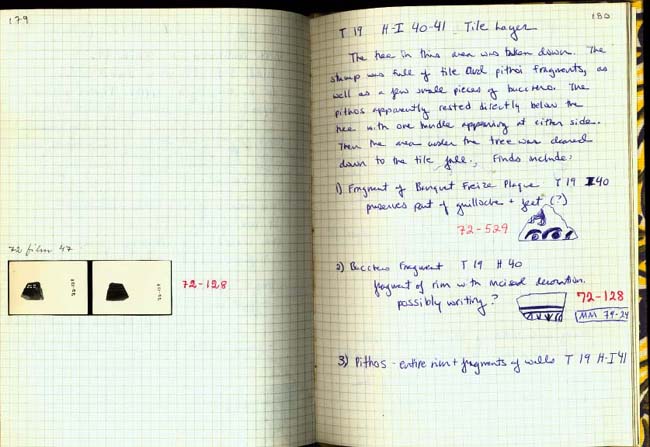 179
72 film 47
72-128
180
T 19 H-I 40-41 Tile Layer
The tree in this area was taken down. The
stump was full of tile and pithoi fragments, as
well as a few small pieces of bucchero. The
pithos apparently rested directly below the
tree with one handle appearing at either side.
Then the area under the tree was cleared
down to the tile fall. Finds include:
1) Fragment of Banquet Freize Plaque T 19 I 40
preserves part of guilloche + feet (?)
72-529
2) Bucchero Fragment T 19 H 40
fragment of rim with incised decoration.
possibly writing?
72-128
MM 79-24
3) Pithos - entire rim + fragments of walls T 19 H-I 41